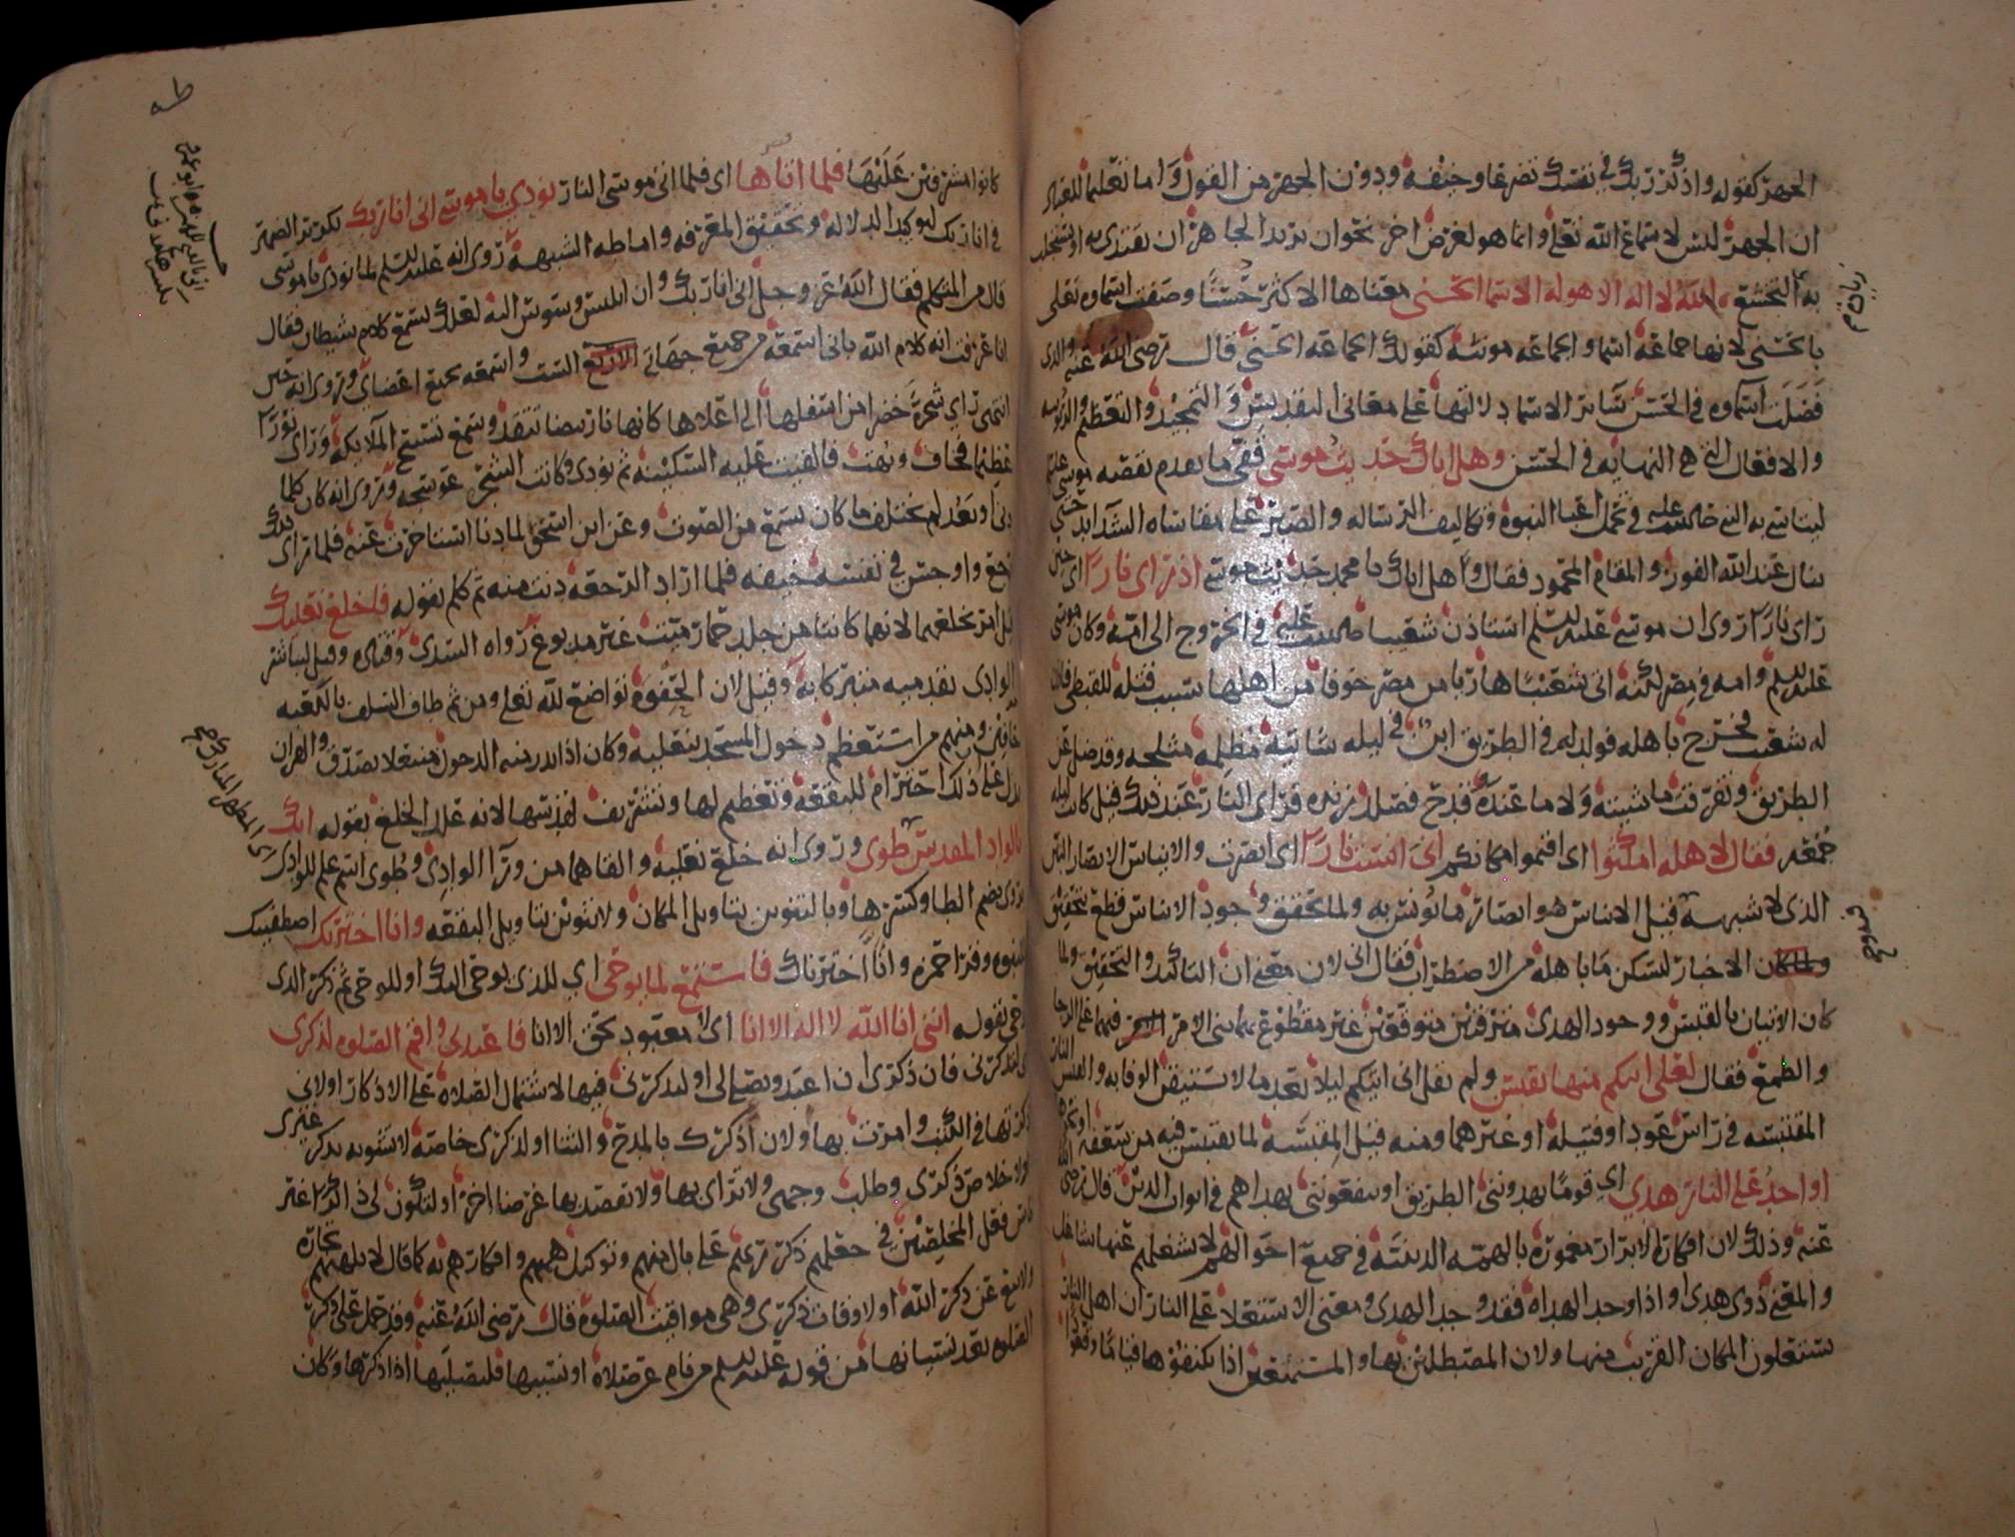 الجهر كقوله واذكر ربك في نفسك تضرعا وخيفه ودون الجهر من القول واما تعليما للعباد
ان الجهر ليس لاسماع الله تعلى وانما هو لغرض اخر نحو ان يريد الجاهر ان يقتدى به او يستجلب
به التخشع الله لا اله الا هو له الاسما الحسنى معناها الاكثر حسنا وصفت اسماوه تعلى
بالحسنى لانها جماعه اسما والجماعه مونثه كقولك الجماعه الحسنى قال رضي الله عنه والذي
فضلت اسماوه في الحسن سائر الاسما دلالتها على معانى التقديس والتمجيد والتعظيم والربوبيه
والافعال التي هي النهايه في الحسن وهل اتاك حديث موسى قفى ما تقدم بقصه موسى
ليتاسى به النبي في تحمل اعبا النبوه وتكاليف الرساله والصبر على مقاساه الشدايد حتى
ينال عند الله الفوز والمقام المحمود فقال وهل اتاك يا محمد حديث موسى اذ راى نارا اي حين
راى نارا روى ان موسى عليه السلم استاذن شعيبا في الخروج الى امه وكان موسى
عليه السلم وامه في مصر لكنه اتى شعيبا هاربا من مصر خوفا من اهلها بسبب قتله للقبطي فاذن
له شعيب فخرج باهله فولد له في الطريق ابن في ليله شاتيه مظلمه مثلجه وقد ضل عن
الطريق وتفرقت ماشيته ولا ما عنده وقدح فصلد زنده فراى النار عند ذلك قيل كانت ليله
جمعه فقال لاهله امكثوا اي اقيموا مكانكم انى انست نارا اي ابصرت والايناس الابصار البين
الذي لا شبهه فيه قيل الايناس هو ابصار ما يونس به ولما تحقق وجود الايناس قطع بتحقيق
الاخبار ليسكن ما باهله من الاضطراب فقال اني لان معنى ان التاكيد والتحقيق ولما
كان الاتيان بالقبس ووجود الهدى مترقبين متوقعين غير مقطوع بهما بنى الامر فيهما على الرجا
والطمع فقال لعلى اتيكم منها بقبس ولم يقل انى اتيكم ليلا يعد ما لا يستيقن الوفا به والقبس النار
المقتبسه في راس عود او فتيله او غيرهما ومنه قيل المقبسه لما يقتبس فيه من سعفه او نحوه
او اجد على النار هدي اي قوما يهدونني الطريق او ينفعونني بهداهم في ابواب الدين قال رضي الله
عنه وذلك لان افكار الابرار مغموره بالهمه الدينيه في جميع احوالهم لا يشغلهم عنها شاغل
والمعنى ذوى هدى او اذا وجد الهداه فقد وجد الهدى ومعنى الاستعلا على النار ان اهل النار
يستعلون المكان القريب منها ولان المصطلين بها والمستمتعين اذا تكنفوها قياما وقعودا
كانوا مشرفين عليها فلما اتاها اي فلما اتى موسى النار نودي يا موسى انى انا ربك تكرير الضمير
في انا ربك لتوكيد الدلاله وتحقيق المعرفه واماطه الشبهه روى انه عليه السلم لما نودي يا موسى
قال من المتكلم فقال الله عز وجل انى انا ربك وان ابليس وسوس اليه لعلك تسمع كلام شيطان فقال
انا عرفت انه كلام الله بانى اسمعه من جميع جهاتي الست واسمعه بجميع اعضاي وروى انه حين
انتهى راى شجره خضرا من اسفلها الى اعلاها كانها نار بيضا تتقد وسمع تسبيح الملايكه وراى نورا
عظيما فخاف وبهت فالقيت عليه السكينه ثم نودي وكانت الشجره عوسجه وروى انه كان كلما
دنى او بعد لم يختلف ما كان يسمع من الصوت وعن ابن اسحق لما دنا استاخرت عنه فلما راى ذلك
رجع واوجس في نفسه خيفه فلما اراد الرجعه دنت منه ثم كلم بقوله فاخلع نعليك
قيل امر بخلعهما لانهما كانتا من جلد حمار ميت غير مدبوغ رواه السدي وقتاده وقيل ليباشر
الوادى بقدميه متبركا به وقيل لان الحفوه تواضع لله تعلى ومن ثم طاف السلف بالكعبه
حافين ومنهم من استعظم دخول المسجد بنعليه وكان اذا ندر منه الدخول منتعلا تصدق والقران
يدل على ذلك احترام للبقعه وتعظيم لها وتشريف لقدسها لانه علل الخلع بقوله انك
بالواد المقدس طوى وروى انه خلع نعليه والقاهما من ورا الوادى وطوى اسم علم للوادى
قرى بضم الطا وكسرها وبالتنوين بتاويل المكان ولا تنوين بتاويل البقعه وانا اخترتك اصطفيتك
للنبوه وقرا حمزه وانا اخترناك فاستمع لما يوحى اي للذي يوحى اليك او للوحى ثم ذكر الذى
يوحى بقوله اننى انا الله لا اله الا انا اي لا معبود بحق الا انا فاعبدني واقم الصلوه لذكرى
لتذكرنى فان ذكرى ان اعبد ويصلى لى او لتذكرنى فيها لاشتمال الصلاه على الاذكار او لانى
ذكرتها في الكتب وامرت بها او لان اذكرك بالمدح والثنا او لذكرى خاصه لا تشوبه بذكر غيرى
او لاخلاص ذكرى وطلب وجهى ولا تراى بها ولا تقصد بها غرضا اخر او لتكون لى ذاكرا غير
ناس فعل المخلصين في جعلهم ذكر ربهم على بال منهم وتوكيل هممهم وافكارهم به كما قال لا تلهيهم تجاره
ولا بيع عن ذكر الله او لاوقات ذكرى وهي مواقيت الصلوه قال رضي الله عنه وقد حمل على ذكر
الصلوه بعد نسيانها من قوله عليه السلم من نام عن صلاه او نسيها فليصليها اذا ذكرها وكان